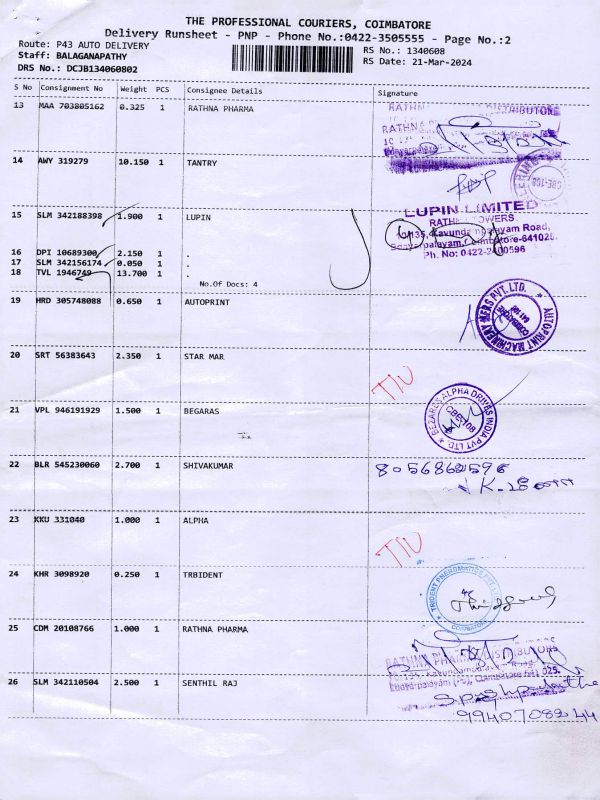 THE PROFESSIONAL COURIERS, COIMBATORE
Delivery Runsheet - PNP - Phone No.:0422-3505555 - Page No.:2
Route: P43 AUTO DELIVERY
Staff: BALAGANAPATHY
DRS No.: DCJB134060802
RS No.: 1340608
RS Date: 21-Mar-2024
S No Consignment No Weight PCS Consignee Details Signature
13 MAA 703805162 0.325 1 RATHNA PHARMA
14 AWY 319279 10.150 1 TANTRY
15 SLM 342188398 1.900 1 LUPIN
LUPIN LIMITED
Ph. No: 0422-2400596
16 DPI 10689300 2.150 1 .
17 SLM 342156174 0.050 1 .
18 TVL 1946749 13.700 1 .
No.Of Docs: 4
19 HRD 305748088 0.650 1 AUTOPRINT
AUTOPRINT MACHINERY
20 SRT 56383643 2.350 1 STAR MAR
21 VPL 946191929 1.500 1 BEGARAS
ALPHA DRIVES INDIA PVT LTD
22 BLR 545230060 2.700 1 SHIVAKUMAR
8056860596
23 KKU 331040 1.000 1 ALPHA
24 KHR 3098920 0.250 1 TRBIDENT
COIMBATORE
25 CDM 20108766 1.000 1 RATHNA PHARMA
26 SLM 342110504 2.500 1 SENTHIL RAJ
9940708244